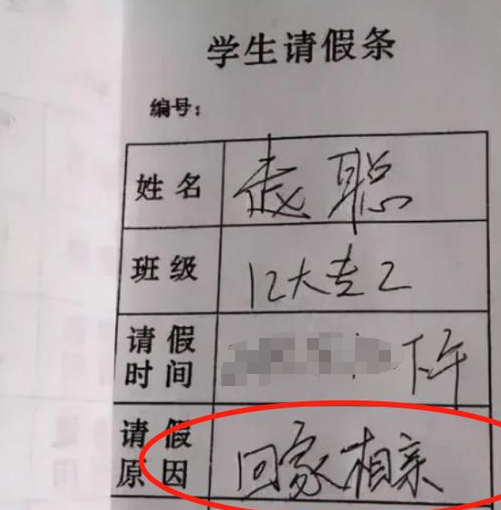 学生请假条
编号：
姓名 聪
班级 12大专2
请假时间 下午
请假原因 回家相亲